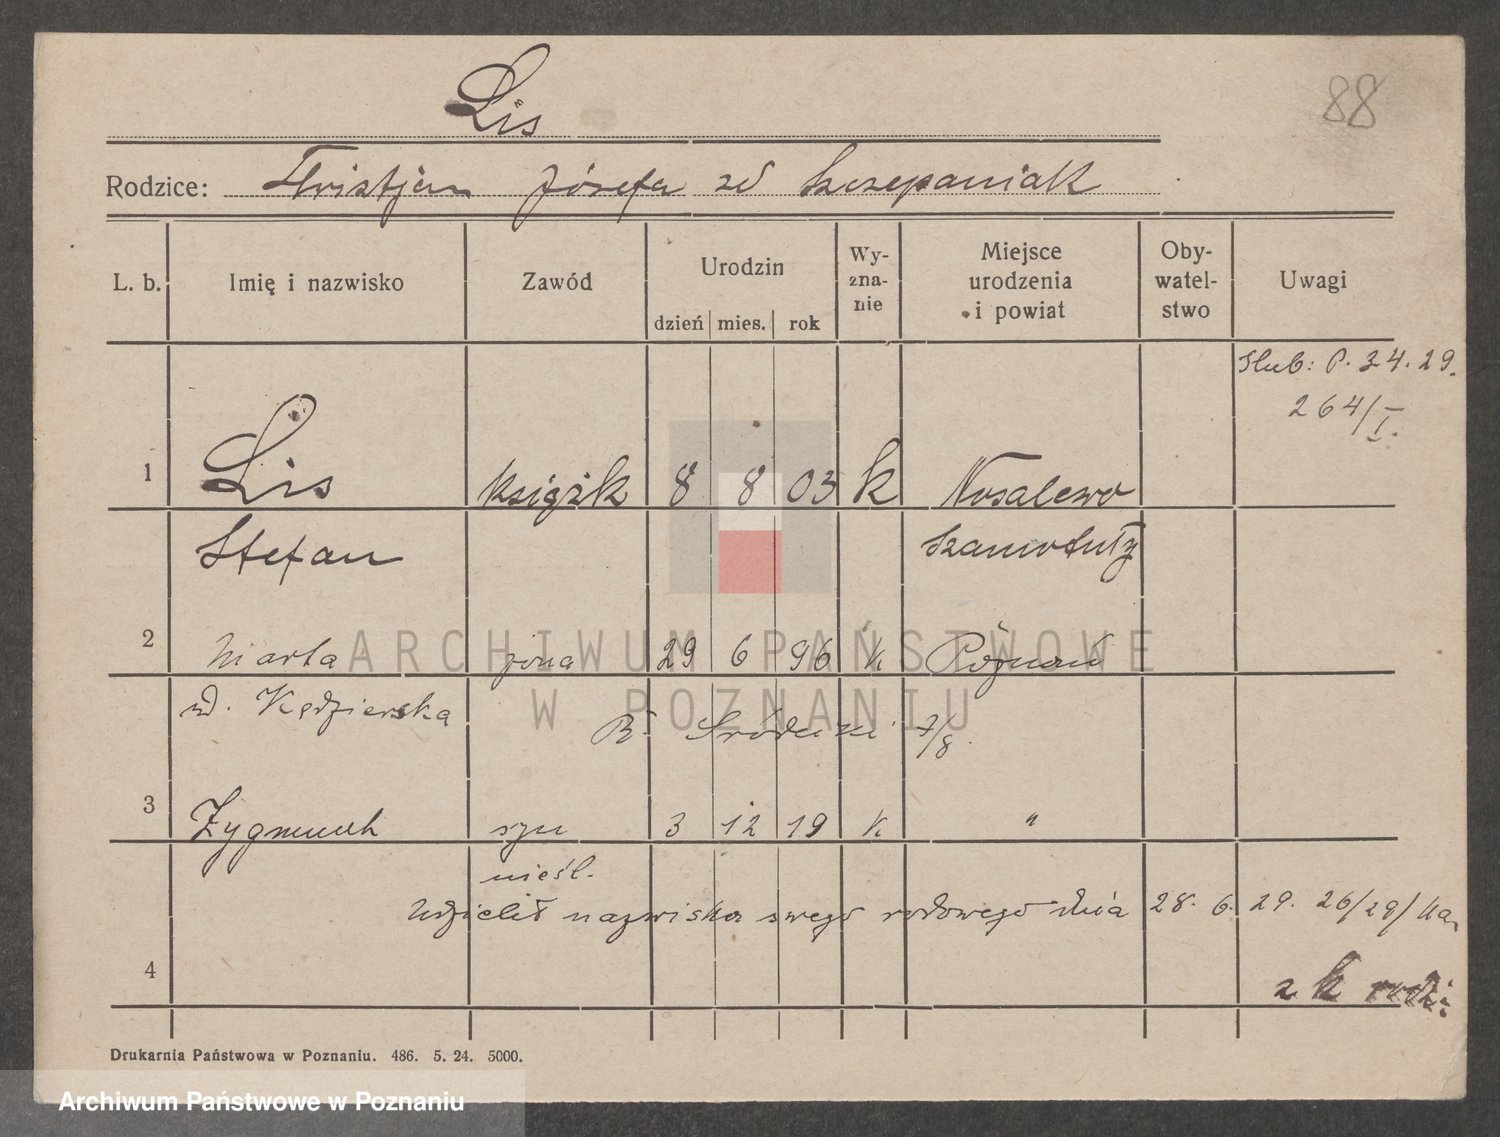 88
Lis
Rodzice: Kristjan Józefa zd Szczepaniak
L. b. Imię i nazwisko Zawód Urodzin Wy-zna-nie Miejsce urodzenia i powiat Oby-watel-stwo Uwagi
dzień mies. rok
ślub: P. 3.4.29.
264/I.
1 Lis książk 8 8 03 k Nosalewo
Stefan Szamotuły
2 Marta żona 29 6 96 k Poznań
zd. Kędzierska B. Śródecki 7/8
3 Zygmunt syn 3 12 19 k "
nieśl.
udzielił nazwiska swego rodowego dnia 28. 6. 29. 26/29/
4 z k
Drukarnia Państwowa w Poznaniu. 486. 5. 24. 5000.
ARCHIWUM PAŃSTWOWE
W POZNANIU
Archiwum Państwowe w Poznaniu